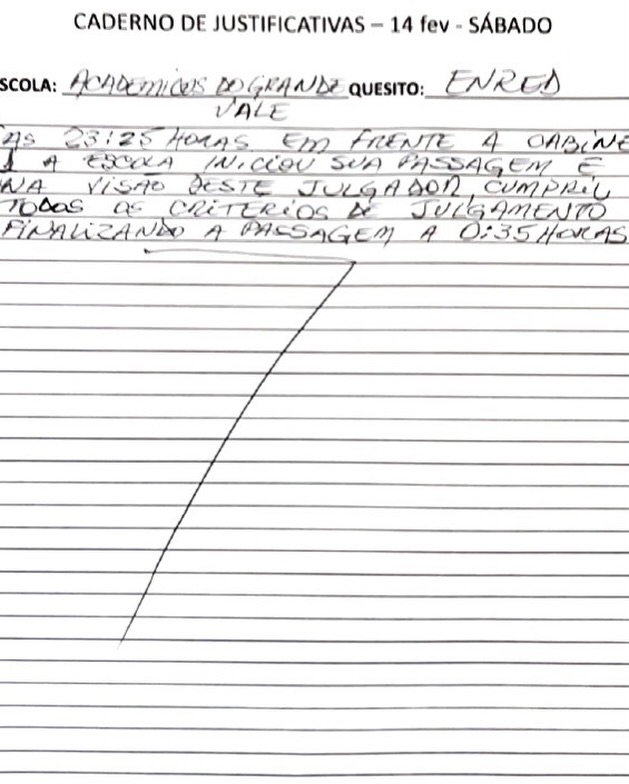 CADERNO DE JUSTIFICATIVAS – 14 fev - SÁBADO
SCOLA: ACADEMICOS DO GRANDE QUESITO: ENREDO
VALE
AS 23:25 HORAS EM FRENTE A CABINE
1 A ESCOLA INICIOU SUA PASSAGEM E
NA VISÃO DESTE JULGADOR, CUMPRIU
TODOS OS CRITERIOS DE JULGAMENTO
FINALIZANDO A PASSAGEM A 0:35 HORAS